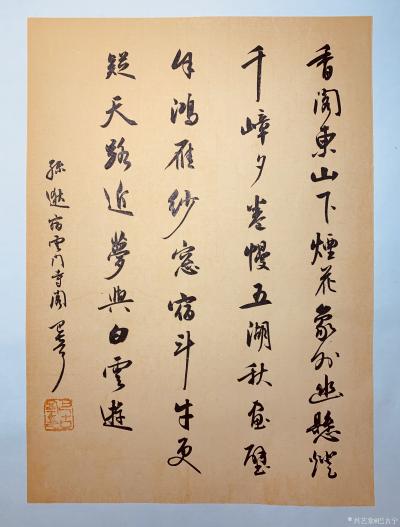 香閣東山下煙花象外幽懸燈
千嶂夕卷幔五湖秋畫壁
餘鴻雁紗窓宿斗牛更
疑天路近夢與白雲遊
孫逖宿雲門寺閣